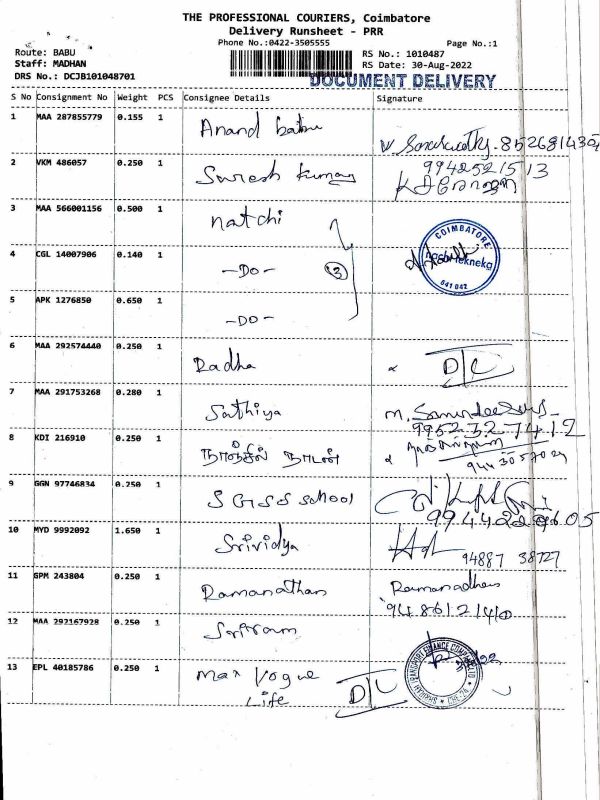 THE PROFESSIONAL COURIERS, Coimbatore
Delivery Runsheet - PRR
Phone No.:0422-3505555
Page No.:1
Route: BABU
RS No.: 1010487
Staff: MADHAN
RS Date: 30-Aug-2022
DRS No.: DCJB101048701
DOCUMENT DELIVERY
S No Consignment No Weight PCS Consignee Details Signature
1 MAA 287855779 0.155 1 Anand babu
2 VKM 486057 0.250 1 Suresh Kumar 9942521513
3 MAA 566001156 0.500 1 natchi
COIMBATORE
641 042
4 CGL 14007906 0.140 1 -DO- 3
5 APK 1276850 0.650 1 -DO-
6 MAA 292574440 0.250 1 Radha D/C
7 MAA 291753268 0.280 1 Sathiya M.
9952327412
8 KDI 216910 0.250 1 நாஞ்சில் நாடன்
9 GGN 97746834 0.250 1 S G S S School
10 MYD 9992092 1.650 1 Srividya 94887 38727
11 GPM 243804 0.250 1 Ramanathan Ramanadhan
12 MAA 292167928 0.250 1 Sriram
13 EPL 40185786 0.250 1 Max Vogue
Life D/C